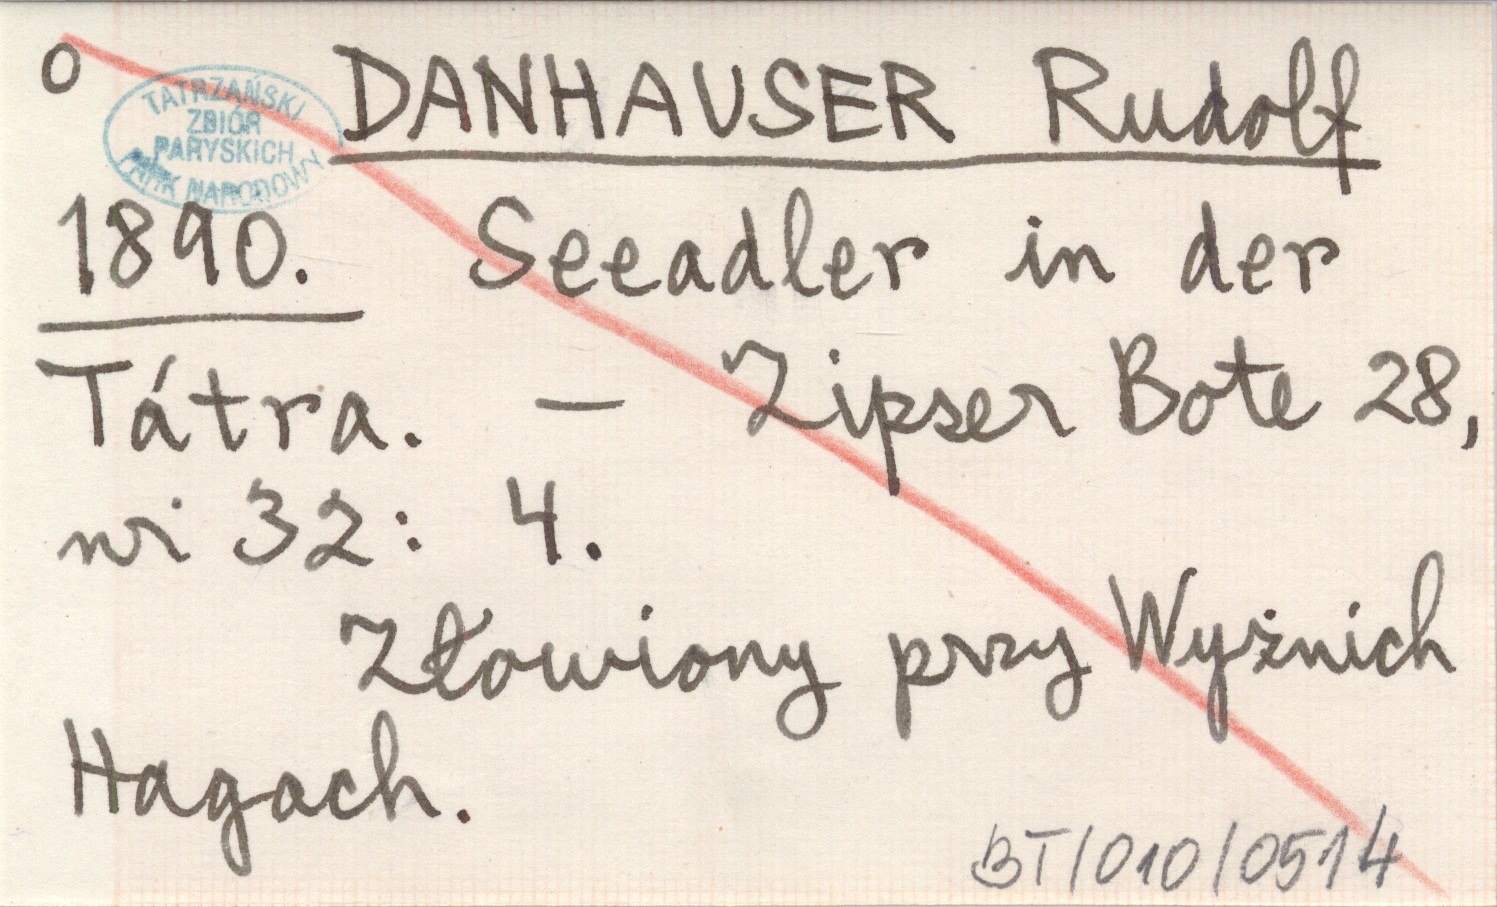 o DANHAUSER Rudolf
TATRZAŃSKI
ZBIÓR
PARYSKICH
PARK NARODOWY
1890. Seeadler in der
Tátra. — Zipser Bote 28,
nr 32: 4.
Złowiony przy Wyżnich
Hagach.
BT/010/0514